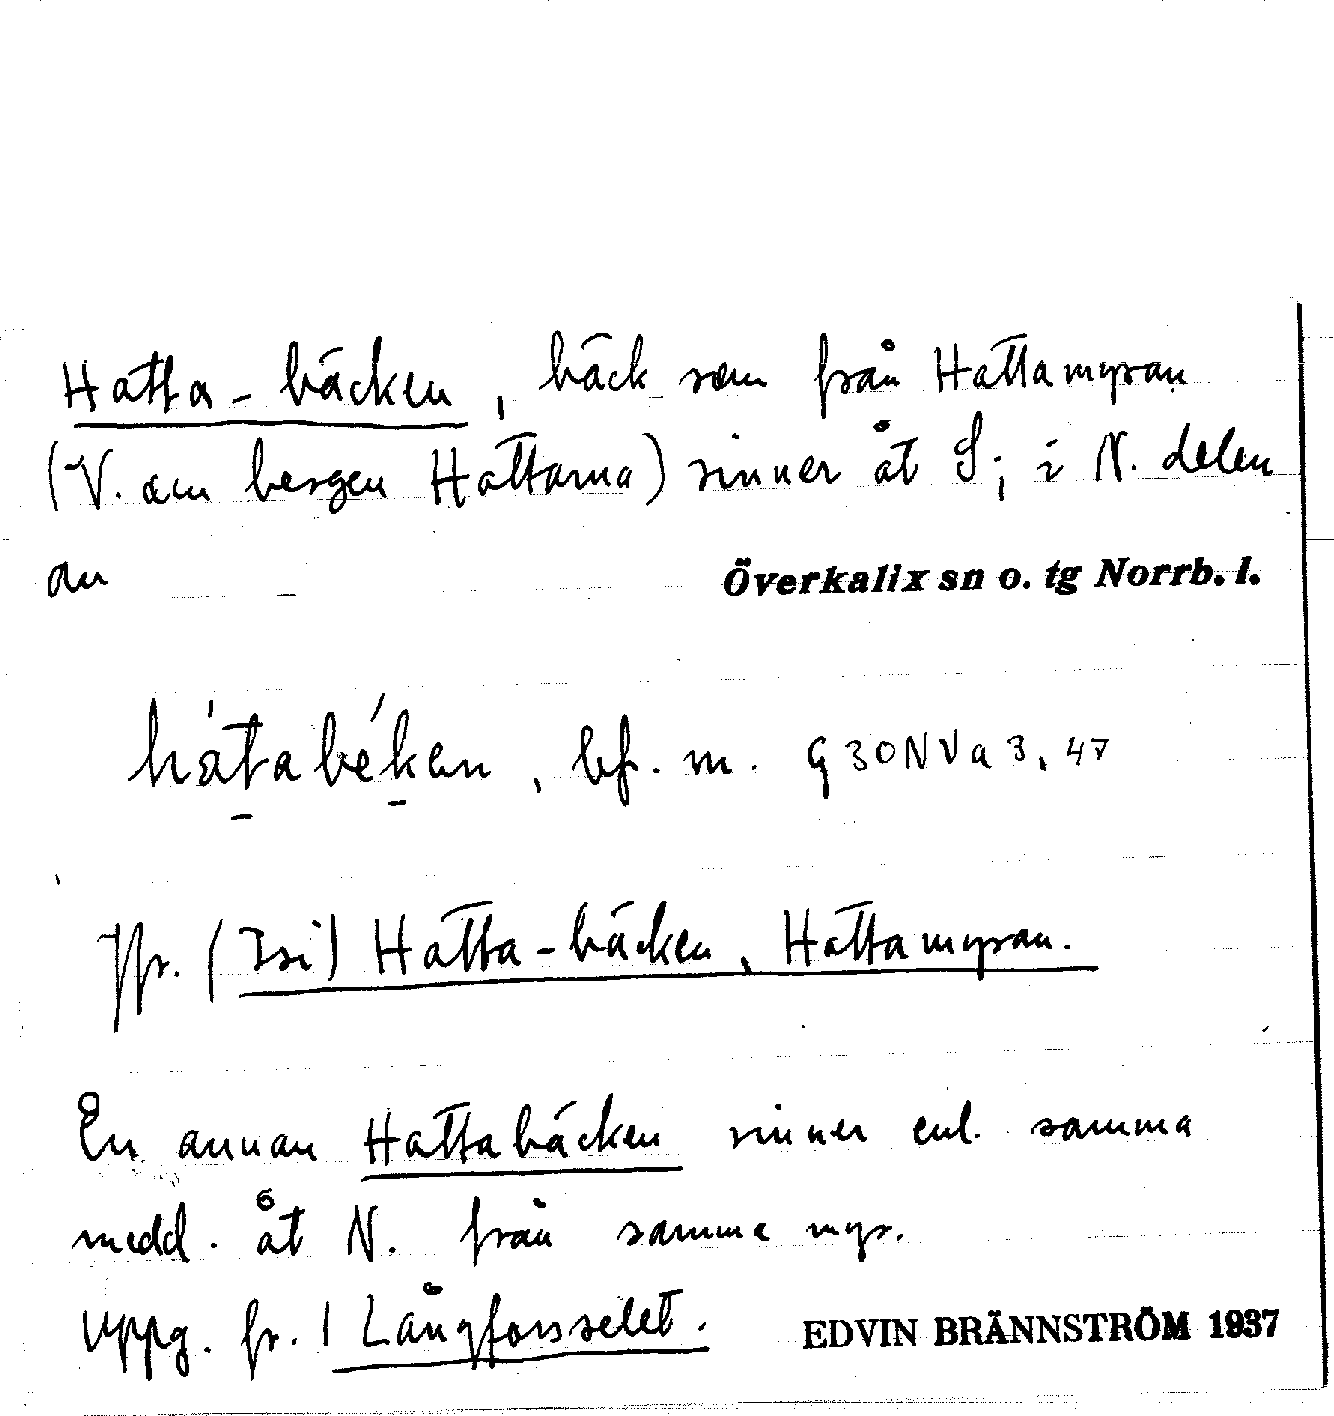 Hatta-bäcken, bäck som från Hattamyran
(V. om bergen Hattarna) rinner åt S; i N. delen
av
Överkalix sn o. tg Norrb. l.
hátabéken, bf. m. G30NVa3,47
Jfr. (Isi) Hatta-bäcken, Hattamyran.
En annan Hattabäcken rinner enl. samma
medd. åt N. från samma myr.
Uppg. fr. 1 Långforsselet.
EDVIN BRÄNNSTRÖM 1937